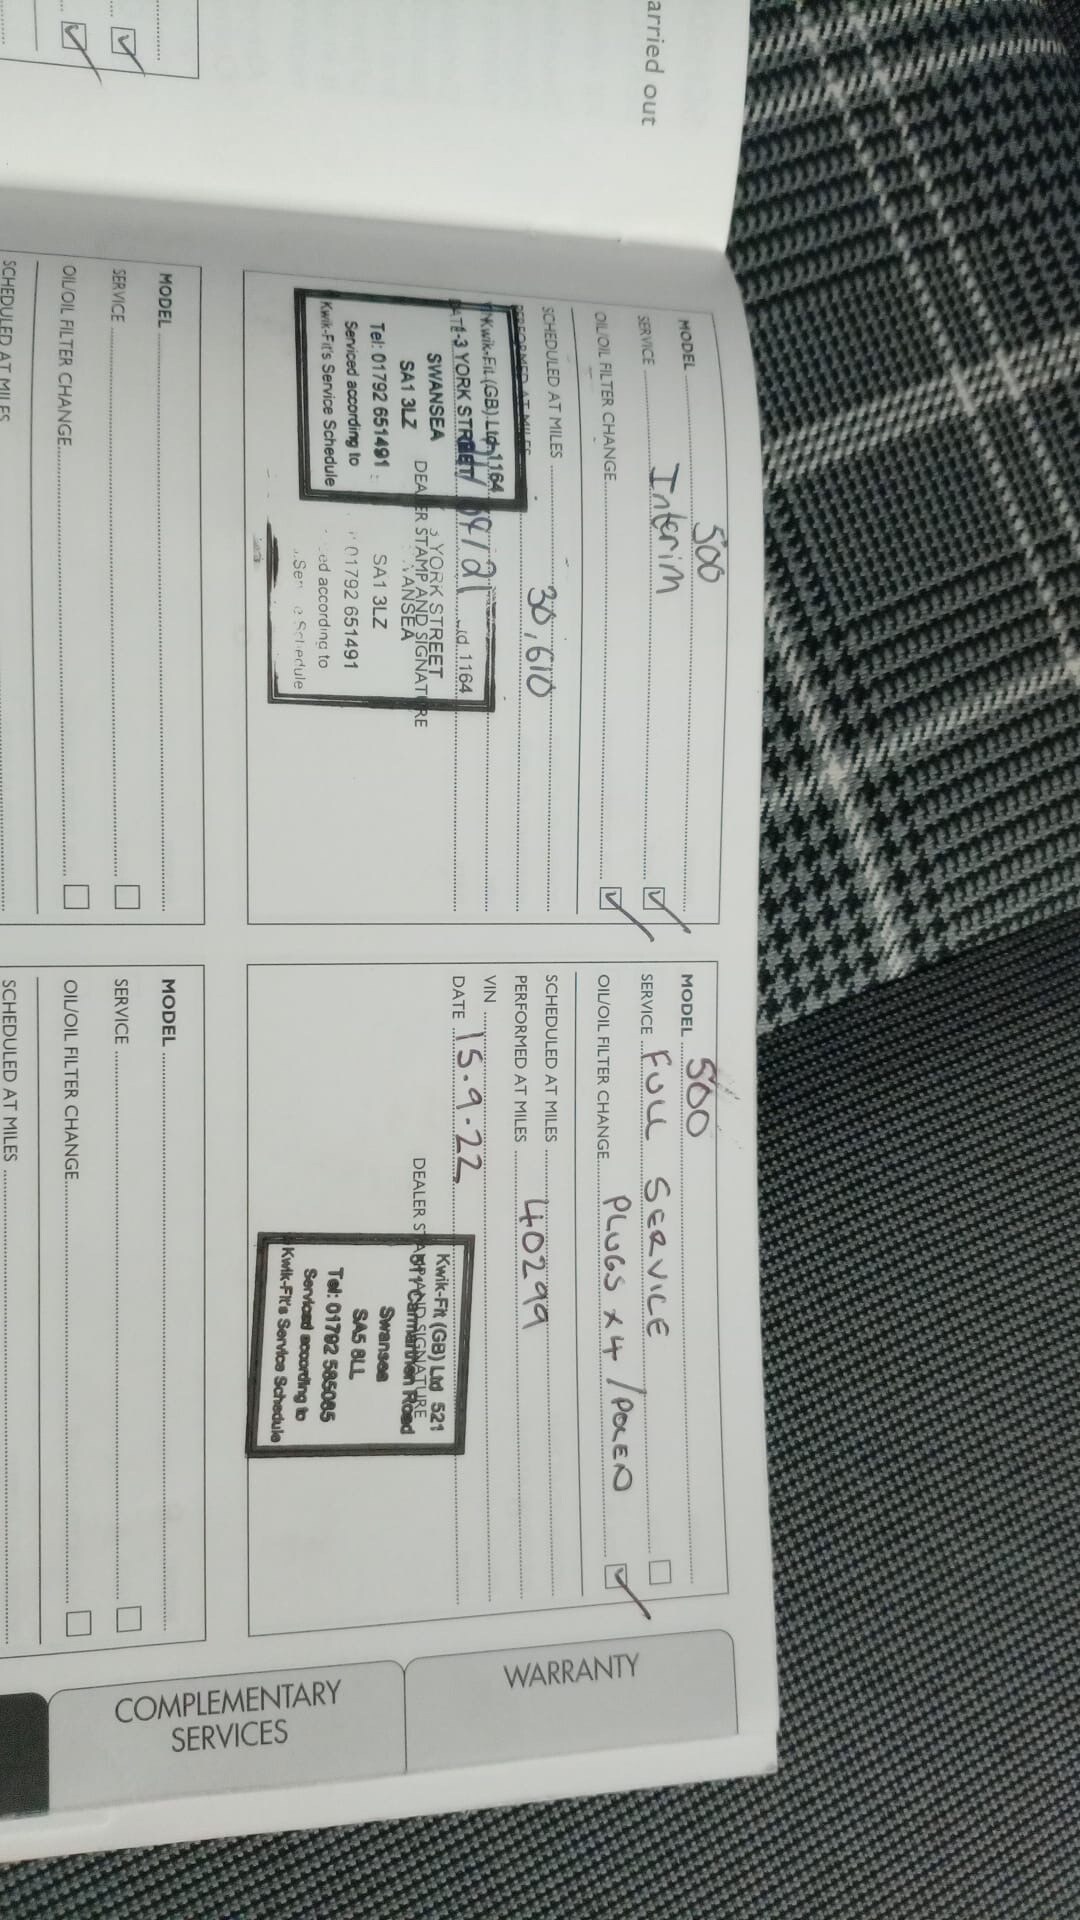 arried out
MODEL 500
SERVICE Interim
OIL/OIL FILTER CHANGE
SCHEDULED AT MILES
PERFORMED AT MILES 30,610
Kwik-Fit (GB) Ltd 1164
1-3 YORK STREET
SWANSEA
SA1 3LZ
Tel: 01792 651491
Serviced according to
Kwik-Fit's Service Schedule
/09/21
DEALER STAMP AND SIGNATURE
1164
YORK STREET
SA1 3LZ
01792 651491
according to
Schedule
MODEL 500
SERVICE FULL SERVICE
OIL/OIL FILTER CHANGE PLUGS x 4 / POLLEN
SCHEDULED AT MILES
PERFORMED AT MILES 40299
VIN
DATE 15.9.22
DEALER STAMP AND SIGNATURE
Kwik-Fit (GB) Ltd 521
Carmarthen Road
Swansea
SA5 8LL
Tel: 01792 585085
Serviced according to
Kwik-Fit's Service Schedule
MODEL
SERVICE
OIL/OIL FILTER CHANGE
SCHEDULED AT MILES
MODEL
SERVICE
OIL/OIL FILTER CHANGE
SCHEDULED AT MILES
WARRANTY
COMPLEMENTARY
SERVICES